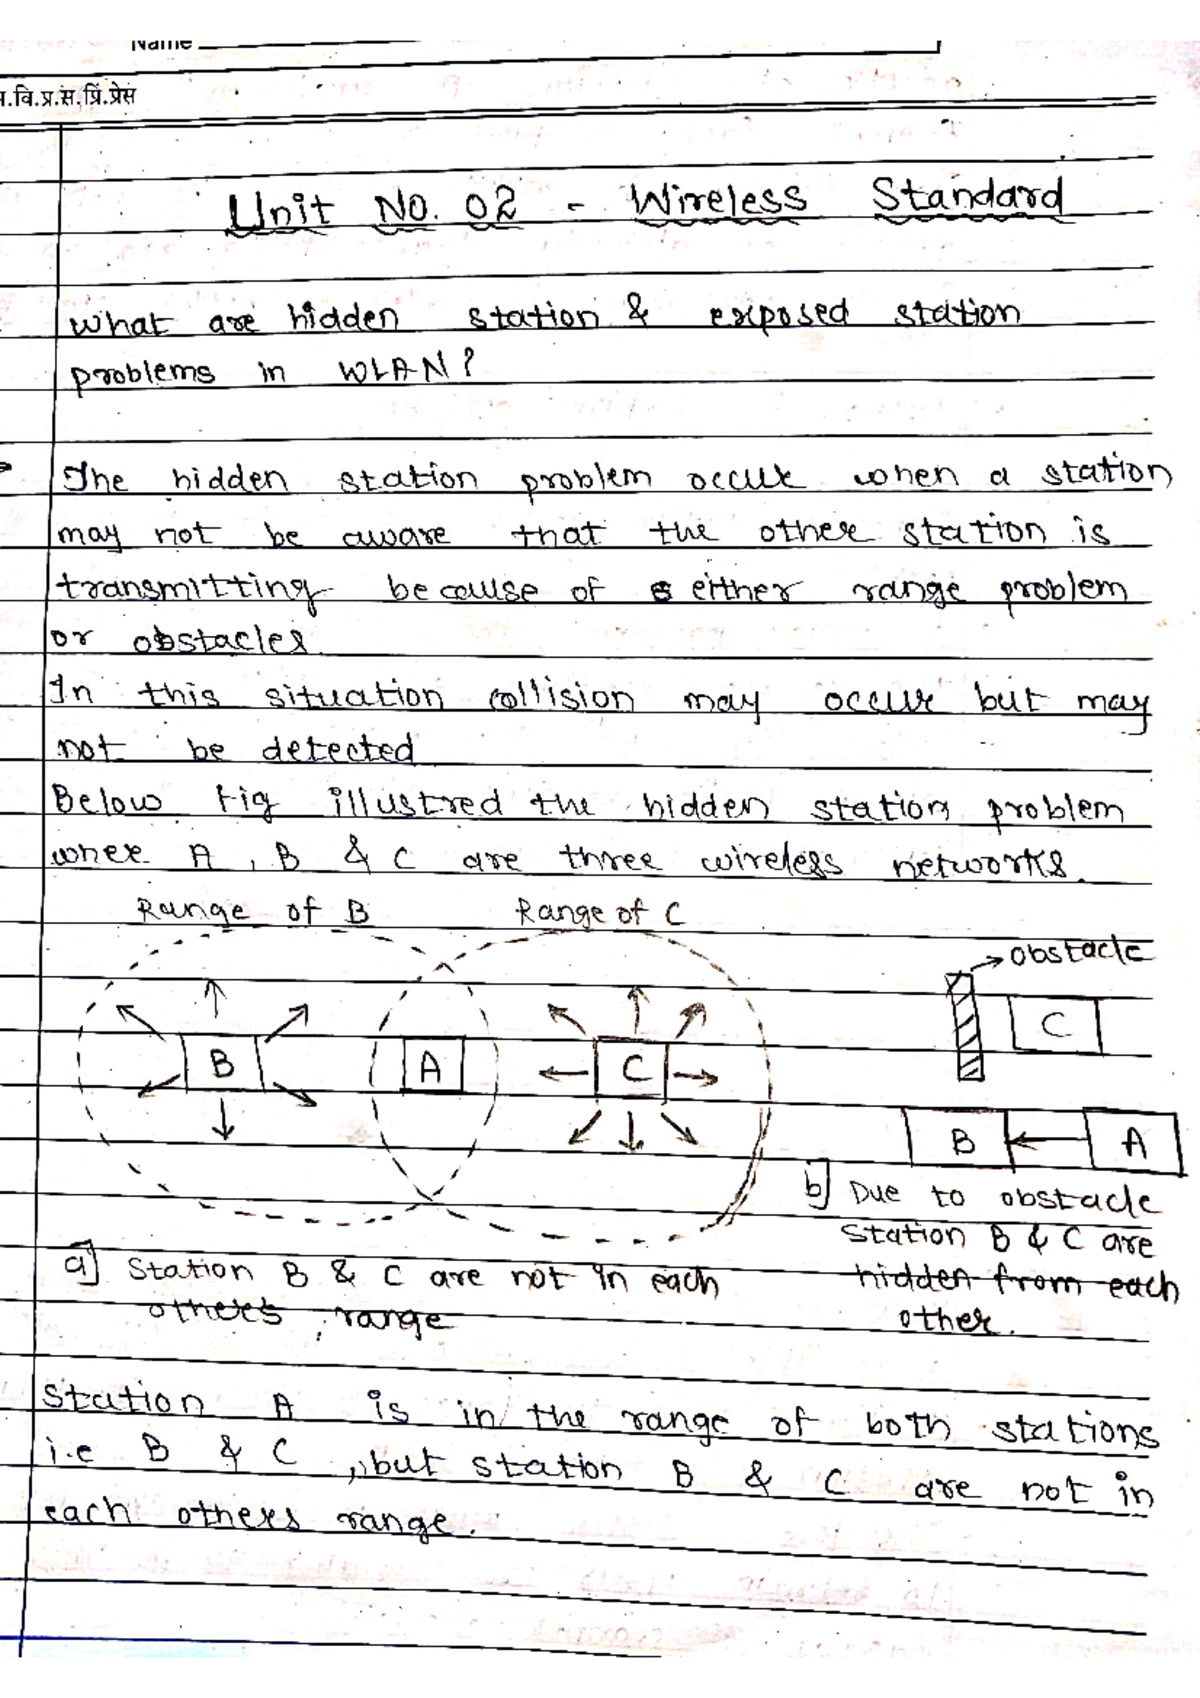 Name
म.वि.प्र.स.प्रिं.प्रेस
Unit No. 02 - Wireless Standard
What are hidden station & exposed station
problems in WLAN?
The hidden station problem occur when a station
may not be aware that the other station is
transmitting because of either range problem
or obstacles.
In this situation collision may occur but may
not be detected
Below fig illustred the hidden station problem
wher A, B & C are three wireless networks.
Range of B Range of C
obstacle
B A C
C
B A
a] Station B & C are not in each
others range
b] Due to obstacle
station B & C are
hidden from each
other.
Station A is in the range of both stations
i.e B & C, but station B & C are not in
each others range.